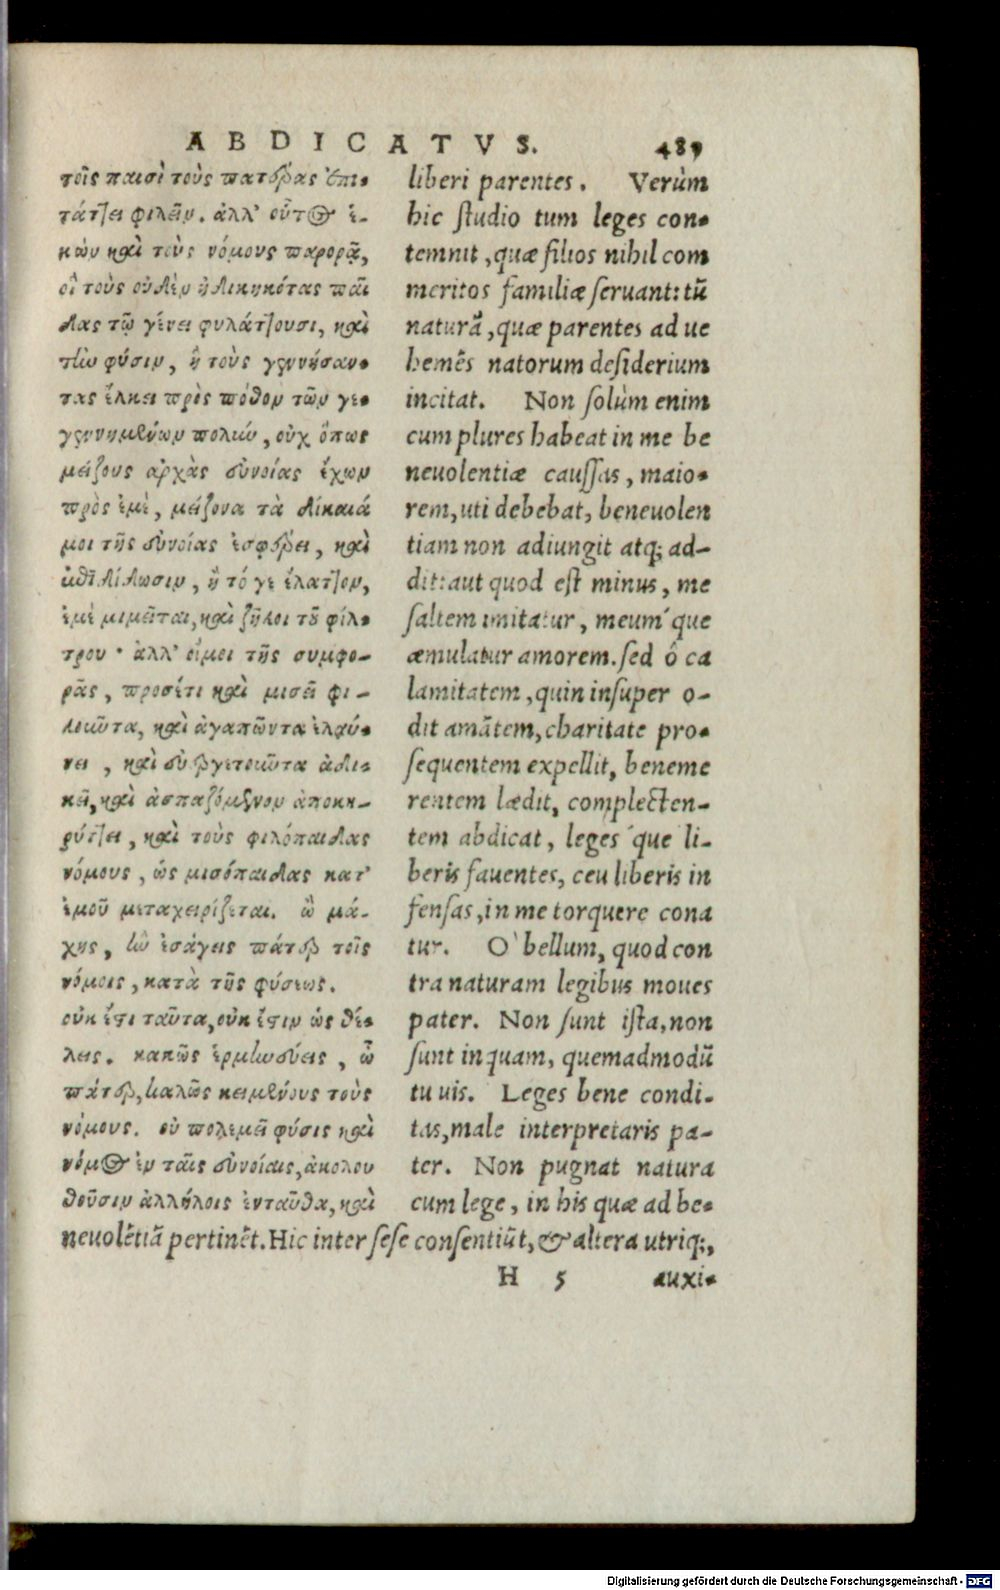 ABDICATVS. 489
τοῖς παισὶ τοὺς πατέρας ἐπι-
τάτ]ει φιλεῖν. ἀλλ' οὗτος ἑ-
κὼν καὶ τοὺς νόμους παρορᾷ,
οἳ τοὺς οὐδὲν ἠδικηκότας παῖ
δας τῷ γένει φυλάττουσι, καὶ
τὴν φύσιν, ἣ τοὺς γεννήσαν-
τας ἕλκει πρὸς πόθον τῶν γε-
γεννημένων πολιὺ, οὐχ ὅπως
μείζους ἀρχὰς εὐνοίας ἔχων
πρὸς ἐμὲ, μείζονα τὰ δίκαιά
μοι τῆς εὐνοίας ἐσφέρει, καὶ
ἐπιδίδωσιν, ἢ τό γε ἔλαττον,
ἐμὲ μιμεῖται, καὶ ζηλοῖ τοῦ φίλ-
τρου· ἀλλ' οἴμοι τῆς συμφο-
ρᾶς, προσέτι καὶ μισεῖ φι-
λοῦντα, καὶ ἀγαπῶντα ἐλαύ-
νει, καὶ εὐεργετοῦντα ἀδι-
κεῖ, καὶ ἀσπαζόμενον ἀποκη-
ρύττει, καὶ τοὺς φιλόπαιδας
νόμους, ὡς μισόπαιδας κατ'
ἐμοῦ μεταχειρίζεται. ὢ μά-
χης, ἣν ἐσάγεις πάτερ τοῖς
νόμοις, κατὰ τῆς φύσεως.
οὐκ ἔστι ταῦτα, οὐκ ἔστιν ὡς θέ-
λεις. κακῶς ἑρμηνεύεις, ὦ
πάτερ, καλῶς κειμένους τοὺς
νόμους. οὐ πολεμεῖ φύσις καὶ
νόμος ἐν ταῖς εὐνοίαις, ἀκολου
θοῦσιν ἀλλήλοις ἐνταῦθα, καὶ
liberi parentes. Verùm
hic studio tum leges con-
temnit, quæ filios nihil com
meritos familiæ seruant: tū
naturā, quæ parentes ad ue
hemēs natorum desiderium
incitat. Non solùm enim
cum plures habeat in me be
neuolentiæ caussas, maio-
rem, uti debebat, beneuolen
tiam non adiungit atq; ad-
dit: aut quod est minus, me
saltem imitatur, meum´que
æmulatur amorem. sed ô ca
lamitatem, quin insuper o-
dit amātem, charitate pro-
sequentem expellit, beneme
rentem lædit, complecten-
tem abdicat, leges´que li-
beris fauentes, ceu liberis in
fensas, in me torquere cona
tur. O` bellum, quod con
tra naturam legibus moues
pater. Non sunt ista, non
sunt inquam, quemadmodū
tu uis. Leges bene condi-
tas, male interpretaris pa-
ter. Non pugnat natura
cum lege, in his quæ ad be-
neuolētiā pertinēt. Hic inter sese consentiūt, & altera utriq;,
H 5 auxi-
Digitalisierung gefördert durch die Deutsche Forschungsgemeinschaft - DFG